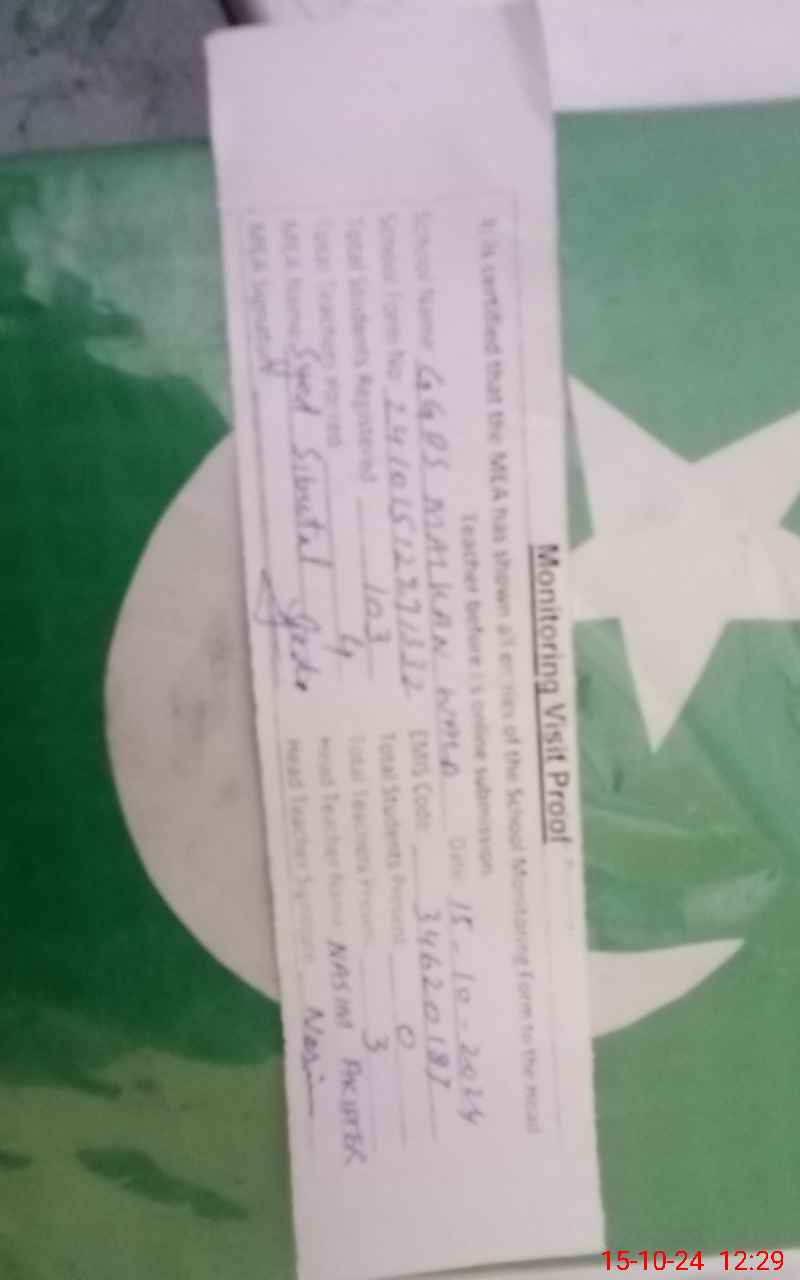 Monitoring Visit Proof
It is certified that the MEA has shown all entries of the School Monitoring Form to the Head
Teacher before its online submission
School Name: GGPS MALKAN WALA Date: 15-10-2024
School Form No: EMIS Code: 34620187
Total Students Registered 103 Total Students Present 0
Total Teachers Posted 4 Total Teachers Present 3
MEA Name: Syed Head Teacher Name NASIM AKHTER
MEA Signature Head Teacher Signature Nasim
15-10-24 12:29